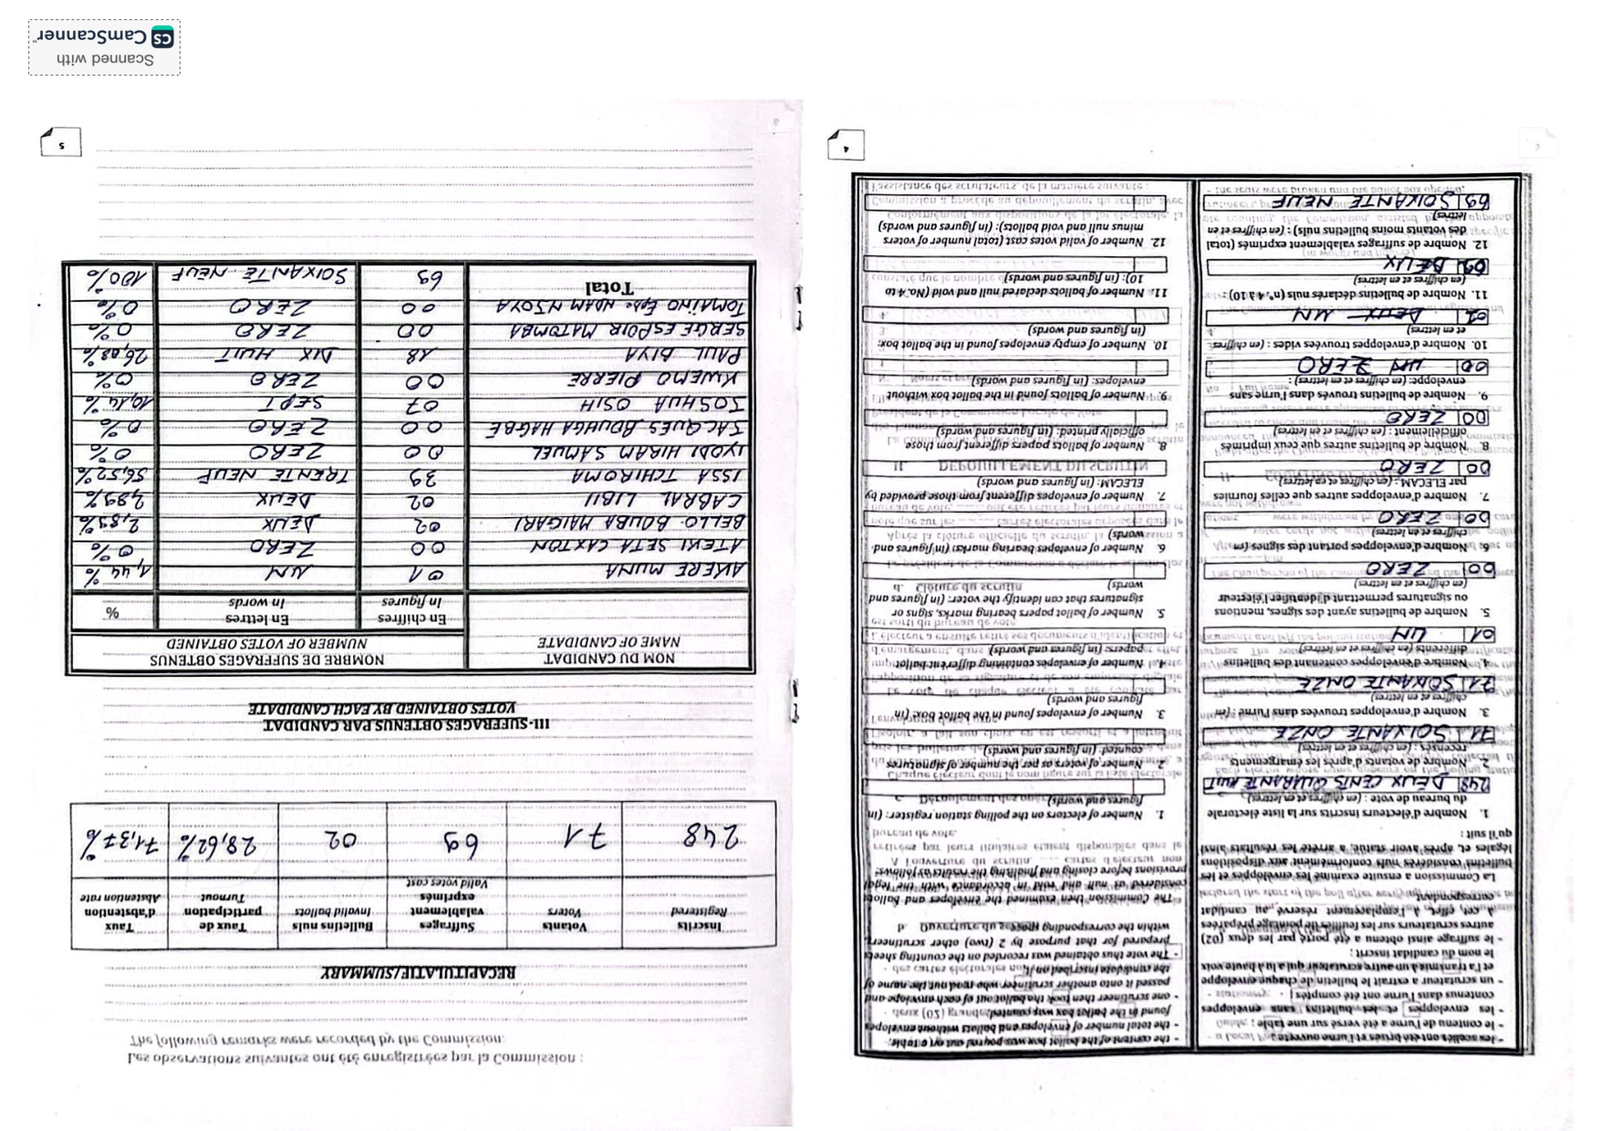 - les scellés ont été brisés et l'urne ouverte ;
- le contenu de l'urne a été versé sur une table ;
- les enveloppes et les bulletins sans enveloppes contenus dans l'urne ont été comptés ;
- un scrutateur a extrait le bulletin de chaque enveloppe et l'a transmis à un autre scrutateur qui a lu à haute voix le nom du candidat inscrit ;
- le suffrage ainsi obtenu a été porté par les deux (02) autres scrutateurs sur les feuilles de pointage préparées à cet effet, à l'emplacement réservé au candidat correspondant.
La Commission a ensuite examiné les enveloppes et les bulletins considérés nuls conformément aux dispositions légales et, après avoir statué, a arrêté les résultats ainsi qu'il suit :
1. Nombre d'électeurs inscrits sur la liste électorale du bureau de vote : (en chiffres et en lettres)
248 DEUX CENTS QUARANTE HUIT
2. Nombre de votants d'après les émargements recensés : (en chiffres et en lettres)
71 SOIXANTE ONZE
3. Nombre d'enveloppes trouvées dans l'urne : (en chiffres et en lettres)
71 SOIXANTE ONZE
4. Nombre d'enveloppes contenant des bulletins différents (en chiffres et en lettres)
01 UN
5. Nombre de bulletins ayant des signes, mentions ou signatures permettant d'identifier l'électeur (en chiffres et en lettres)
00 ZERO
6. Nombre d'enveloppes portant des signes (en chiffres et en lettres)
00 ZERO
7. Nombre d'enveloppes autres que celles fournies par ELECAM : (en chiffres et en lettres)
00 ZERO
8. Nombre de bulletins autres que ceux imprimés officiellement : (en chiffres et en lettres)
00 ZERO
9. Nombre de bulletins trouvés dans l'urne sans enveloppe: (en chiffres et en lettres) :
00 UN ZERO
10. Nombre d'enveloppes trouvées vides : (en chiffres et en lettres)
01 DEUX UN
11. Nombre de bulletins déclarés nuls (n° 4 à 10) : (en chiffres et en lettres)
02 DEUX
12. Nombre de suffrages valablement exprimés (total des votants moins bulletins nuls) : (en chiffres et en lettres)
69 SOIXANTE NEUF
- the content of the ballot box was poured out on a table;
- the total number of envelopes and ballots without envelopes found in the ballot box was counted;
- one scrutineer then took the ballot out of each envelope and passed it onto another scrutineer who read out the name of the candidate inscribed on it;
- The vote thus obtained was recorded on the counting sheets prepared for that purpose by 2 (two) other scrutineers, within the corresponding space.
The Commission then examined the envelopes and ballots considered as null and void in accordance with the legal provisions before closing and finalizing the results as follows:
1. Number of electors on the polling station register: (in figures and words)
2. Number of voters as per the number of signatures counted: (in figures and words)
3. Number of envelopes found in the ballot box: (in figures and words)
4. Number of envelopes containing different ballot papers: (in figures and words)
5. Number of ballot papers bearing marks, signs or signatures that can identify the voter: (in figures and words)
6. Number of envelopes bearing marks: (in figures and words)
7. Number of envelopes different from those provided by ELECAM: (in figures and words)
8. Number of ballots papers different from those officially printed: (in figures and words)
9. Number of ballots found in the ballot box without envelopes: (in figures and words)
10. Number of empty envelopes found in the ballot box: (in figures and words)
11. Number of ballots declared null and void (No. 4 to 10): (in figures and words)
12. Number of valid votes cast (total number of voters minus null and void ballots): (in figures and words)
4
Les observations suivantes ont été enregistrées par la Commission :
The following remarks were recorded by the Commission:
RECAPITULATIF/SUMMARY
Inscrits Registered | Votants Voters | Suffrages valablement exprimés Valid votes cast | Bulletins nuls Invalid ballots | Taux de participation Turnout | Taux d'abstention Abstention rate
248 | 71 | 69 | 02 | 28,62% | 71,37%
III- SUFFRAGES OBTENUS PAR CANDIDAT
VOTES OBTAINED BY EACH CANDIDATE
NOM DU CANDIDAT NAME OF CANDIDATE | NOMBRE DE SUFFRAGES OBTENUS NUMBER OF VOTES OBTAINED
En chiffres In figures | En lettres In words | %
AKERE MUNA | 01 | UN | 1,44%
ATEKI SETA CAXTON | 00 | ZERO | 0%
BELLO BOUBA MAIGARI | 02 | DEUX | 2,89%
CABRAL LIBII | 02 | DEUX | 2,89%
ISSA TCHIROMA | 39 | TRENTE NEUF | 56,52%
IYODI HIRAM SAMUEL | 00 | ZERO | 0%
JACQUES BOUHGA HAGBE | 00 | ZERO | 0%
JOSHUA OSIH | 07 | SEPT | 10,14%
KWEMO PIERRE | 00 | ZERO | 0%
PAUL BIYA | 18 | DIX HUIT | 26,08%
SERGE ESPOIR MATOMBA | 00 | ZERO | 0%
TOMAINO Epse NDAM NJOYA | 00 | ZERO | 0%
Total | 69 | SOIXANTE NEUF | 100%
5
Scanned with
CS CamScanner